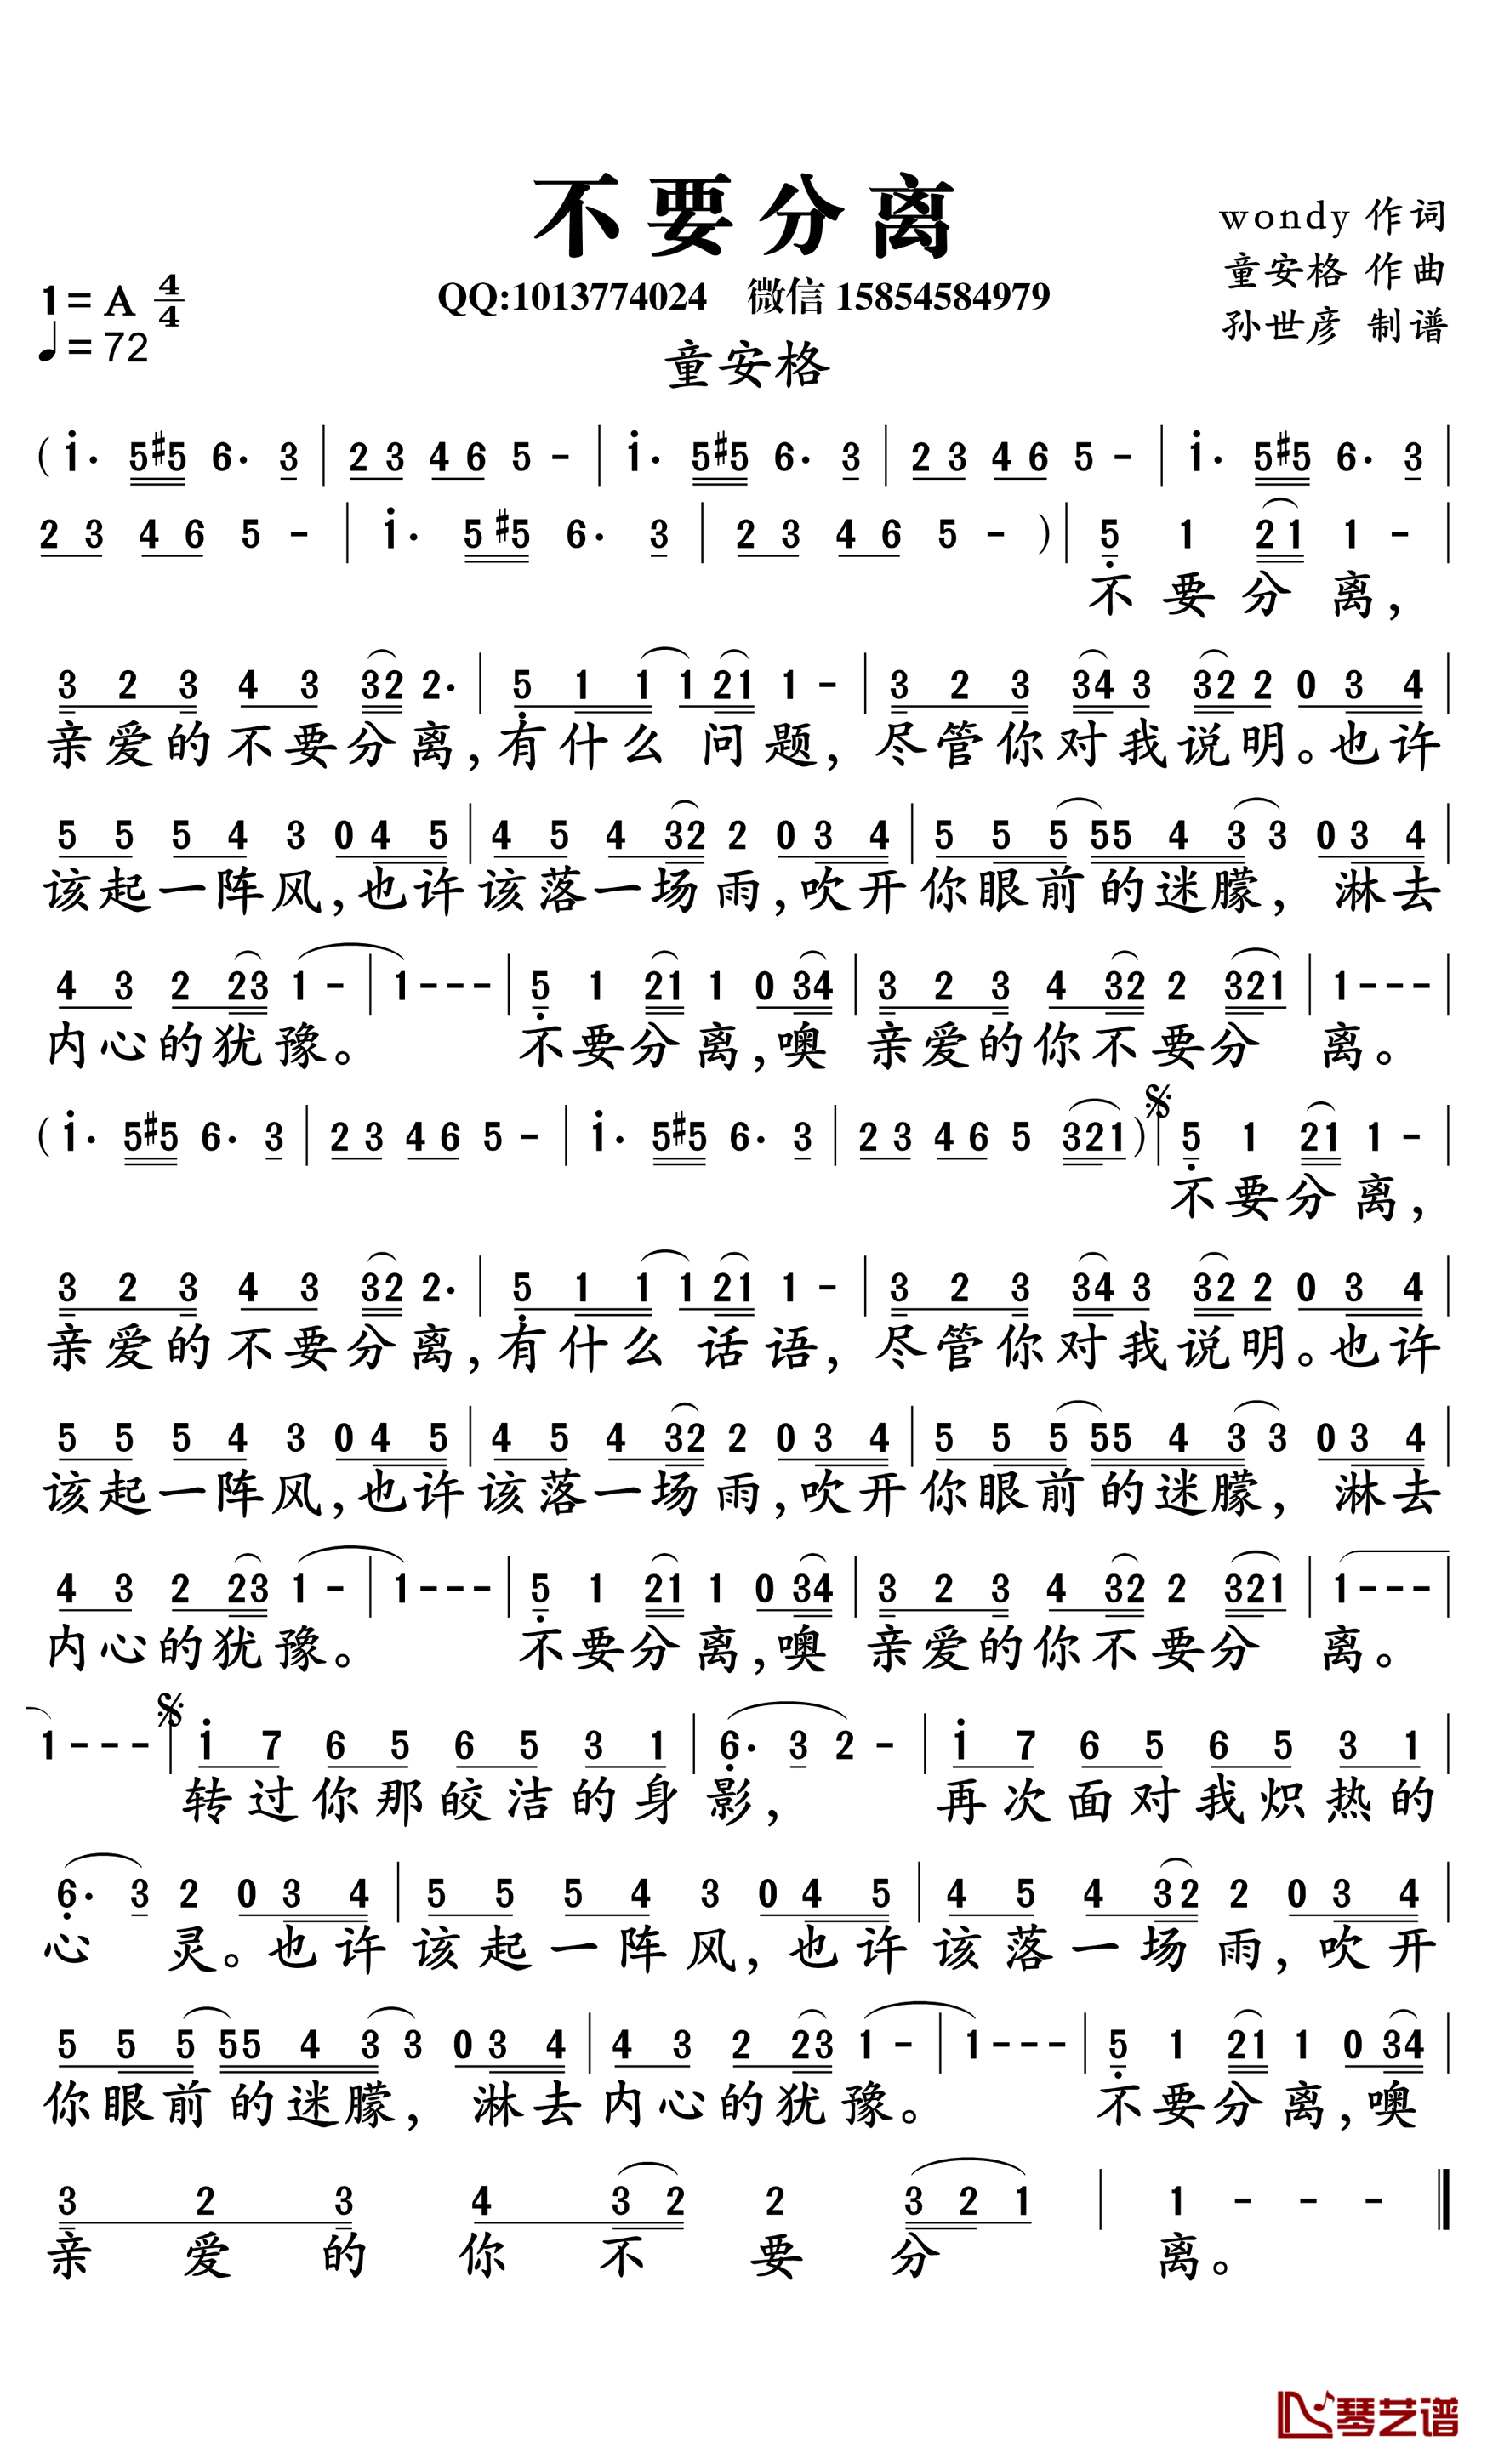 不要分离
wondy 作词
童安格 作曲
孙世彦 制谱
1=A 4/4
♩=72
QQ:1013774024 微信 15854584979
童安格
( i· 5#5 6· 3 | 2 3 4 6 5 - | i· 5#5 6· 3 | 2 3 4 6 5 - | i· 5#5 6· 3 |
2 3 4 6 5 - | i· 5#5 6· 3 | 2 3 4 6 5 - ) | 5 1 21 1 - |
不要分离,
3 2 3 4 3 32 2· | 5 1 1 1 21 1 - | 3 2 3 34 3 32 2 0 3 4 |
亲爱的不要分离,有什么问题,尽管你对我说明。也许
5 5 5 4 3 0 4 5 | 4 5 4 32 2 0 3 4 | 5 5 5 55 4 3 3 0 3 4 |
该起一阵风,也许该落一场雨,吹开你眼前的迷朦,淋去
4 3 2 23 1 - | 1 - - - | 5 1 21 1 0 34 | 3 2 3 4 32 2 321 | 1 - - - |
内心的犹豫。 不要分离,噢 亲爱的你不要分 离。
( i· 5#5 6· 3 | 2 3 4 6 5 - | i· 5#5 6· 3 | 2 3 4 6 5 321 ) | 5 1 21 1 - |
不要分离,
3 2 3 4 3 32 2· | 5 1 1 1 21 1 - | 3 2 3 34 3 32 2 0 3 4 |
亲爱的不要分离,有什么话语,尽管你对我说明。也许
5 5 5 4 3 0 4 5 | 4 5 4 32 2 0 3 4 | 5 5 5 55 4 3 3 0 3 4 |
该起一阵风,也许该落一场雨,吹开你眼前的迷朦,淋去
4 3 2 23 1 - | 1 - - - | 5 1 21 1 0 34 | 3 2 3 4 32 2 321 | 1 - - - |
内心的犹豫。 不要分离,噢 亲爱的你不要分 离。
1 - - - | i 7 6 5 6 5 3 1 | 6· 3 2 - | i 7 6 5 6 5 3 1 |
转过你那皎洁的身影, 再次面对我炽热的
6· 3 2 0 3 4 | 5 5 5 4 3 0 4 5 | 4 5 4 32 2 0 3 4 |
心 灵。也许该起一阵风,也许该落一场雨,吹开
5 5 5 55 4 3 3 0 3 4 | 4 3 2 23 1 - | 1 - - - | 5 1 21 1 0 34 |
你眼前的迷朦,淋去内心的犹豫。 不要分离,噢
3 2 3 4 3 2 2 3 2 1 | 1 - - - ‖
亲爱的你不要分 离。
琴艺谱